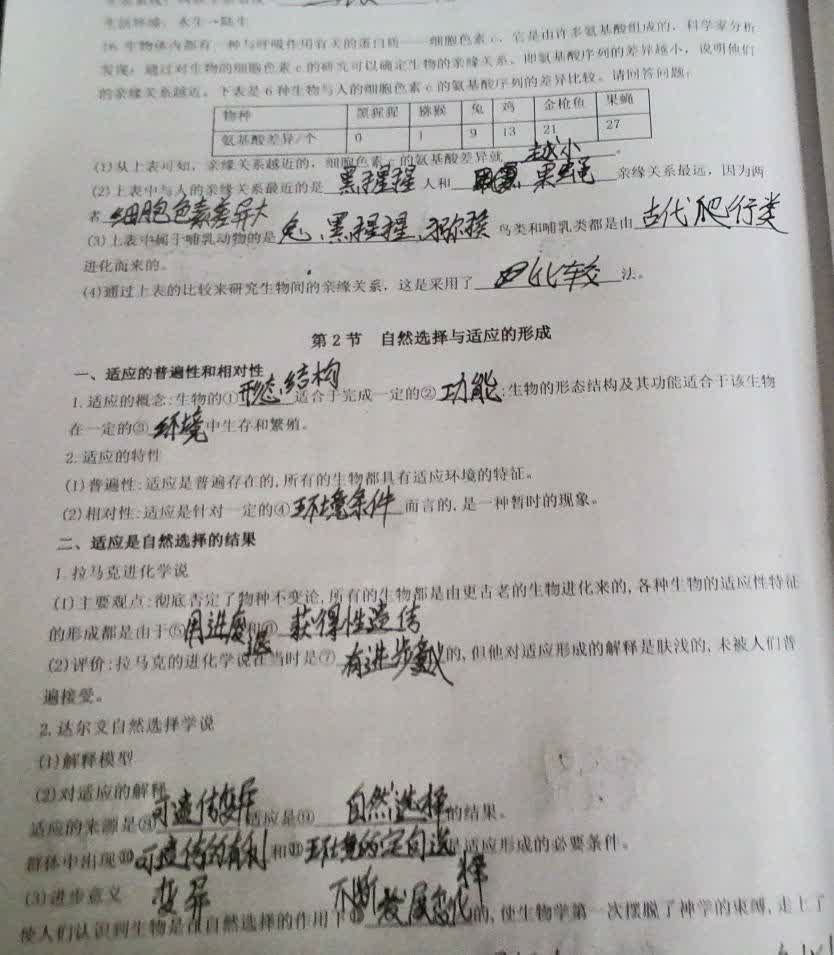 生活环境：水生→陆生
16.生物体内都有一种与呼吸作用有关的蛋白质——细胞色素c，它是由许多氨基酸组成的，科学家分析
发现：通过对生物的细胞色素c的研究可以确定生物的亲缘关系，即氨基酸序列的差异越小，说明他们
的亲缘关系越近。下表是6种生物与人的细胞色素c的氨基酸序列的差异比较。请回答问题：
物种 黑猩猩 猕猴 兔 鸡 金枪鱼 果蝇
氨基酸差异/个 0 1 9 13 21 27
(1)从上表可知，亲缘关系越近的，细胞色素c的氨基酸差异就 越小 。
(2)上表中与人的亲缘关系最近的是 黑猩猩 人和 果蝇 亲缘关系最远，因为两
者 细胞色素差异大
(3)上表中属于哺乳动物的是 兔、黑猩猩、猕猴 鸟类和哺乳类都是由 古代爬行类
进化而来的。
(4)通过上表的比较来研究生物间的亲缘关系，这是采用了 比较 法。
第2节 自然选择与适应的形成
一、适应的普遍性和相对性
1.适应的概念:生物的① 形态结构 适合于完成一定的② 功能 ;生物的形态结构及其功能适合于该生物
在一定的③ 环境 中生存和繁殖。
2.适应的特性
(1)普遍性:适应是普遍存在的,所有的生物都具有适应环境的特征。
(2)相对性:适应是针对一定的④ 环境条件 而言的,是一种暂时的现象。
二、适应是自然选择的结果
1.拉马克进化学说
(1)主要观点:彻底否定了物种不变论,所有的生物都是由更古老的生物进化来的,各种生物的适应性特征
的形成都是由于⑤ 用进废退 和⑥ 获得性遗传
(2)评价:拉马克的进化学说在当时是⑦ 有进步意义 的,但他对适应形成的解释是肤浅的,未被人们普
遍接受。
2.达尔文自然选择学说
(1)解释模型
(2)对适应的解释
适应的来源是⑧ 可遗传变异 适应是⑨ 自然选择 的结果。
群体中出现⑩ 可遗传的有利变异 和⑪ 环境的定向选择 是适应形成的必要条件。
(3)进步意义
使人们认识到生物是在自然选择的作用下 不断发展变化 的,使生物学第一次摆脱了神学的束缚,走上了